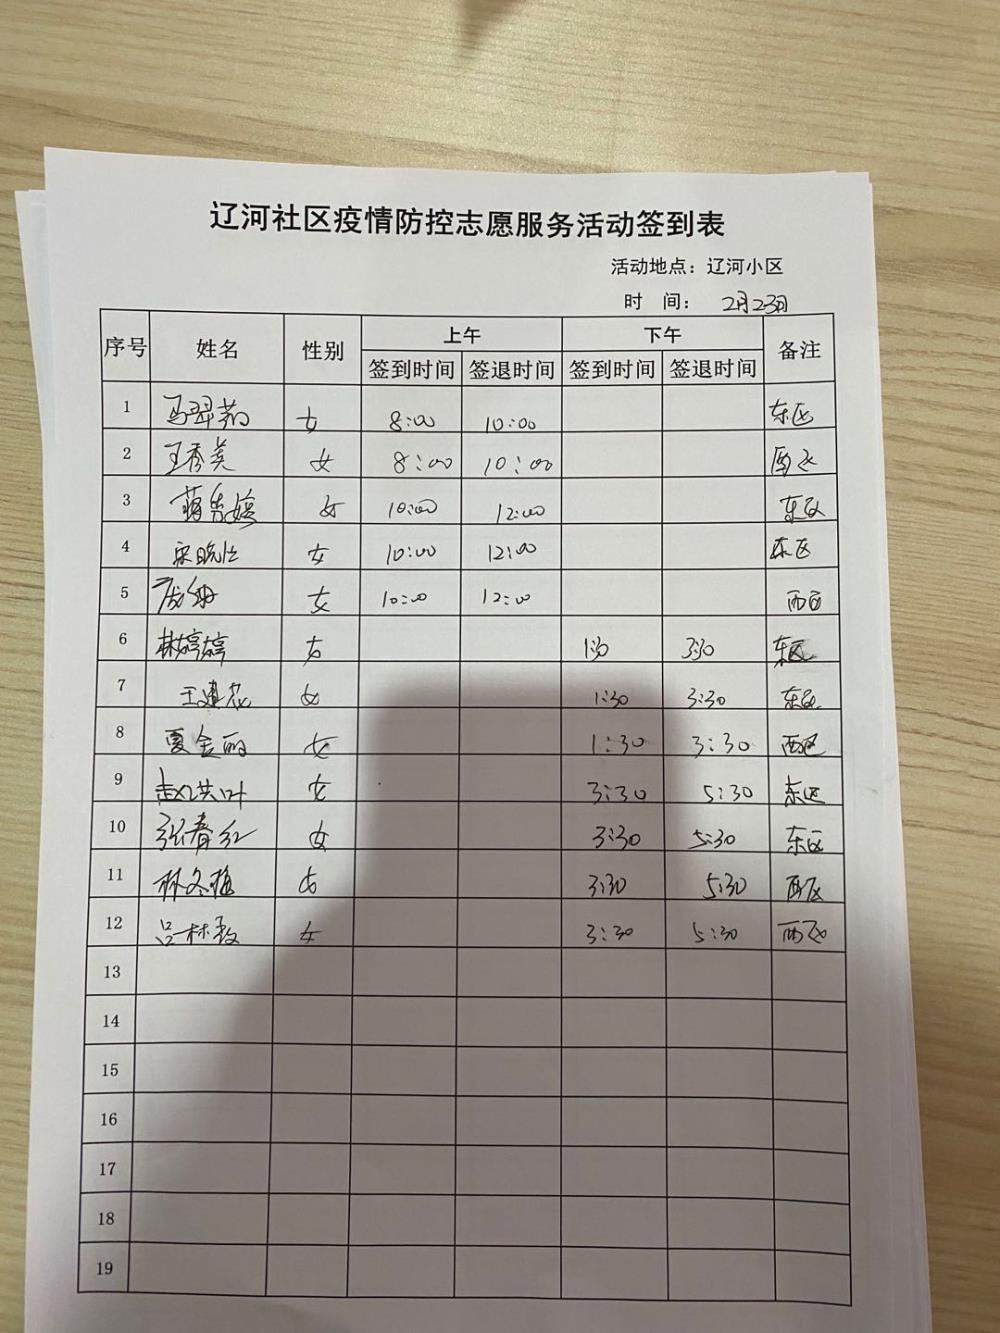 辽河社区疫情防控志愿服务活动签到表
活动地点：辽河小区
时 间： 2月23日
序号 姓名 性别 上午 下午 备注
签到时间 签退时间 签到时间 签退时间
1 马翠菊 女 8:00 10:00 东区
2 王秀英 女 8:00 10:00 西区
3 蒋秀婷 女 10:00 12:00 东区
4 宋晓红 女 10:00 12:00 东区
5 女 10:00 12:00 西区
6 林婷婷 女 1:30 3:30 东区
7 王建花 女 1:30 3:30 东区
8 夏金丽 女 1:30 3:30 西区
9 赵洪叶 女 3:30 5:30 东区
10 张春红 女 3:30 5:30 东区
11 林冬梅 女 3:30 5:30 西区
12 吕林 女 3:30 5:30 西区
13
14
15
16
17
18
19